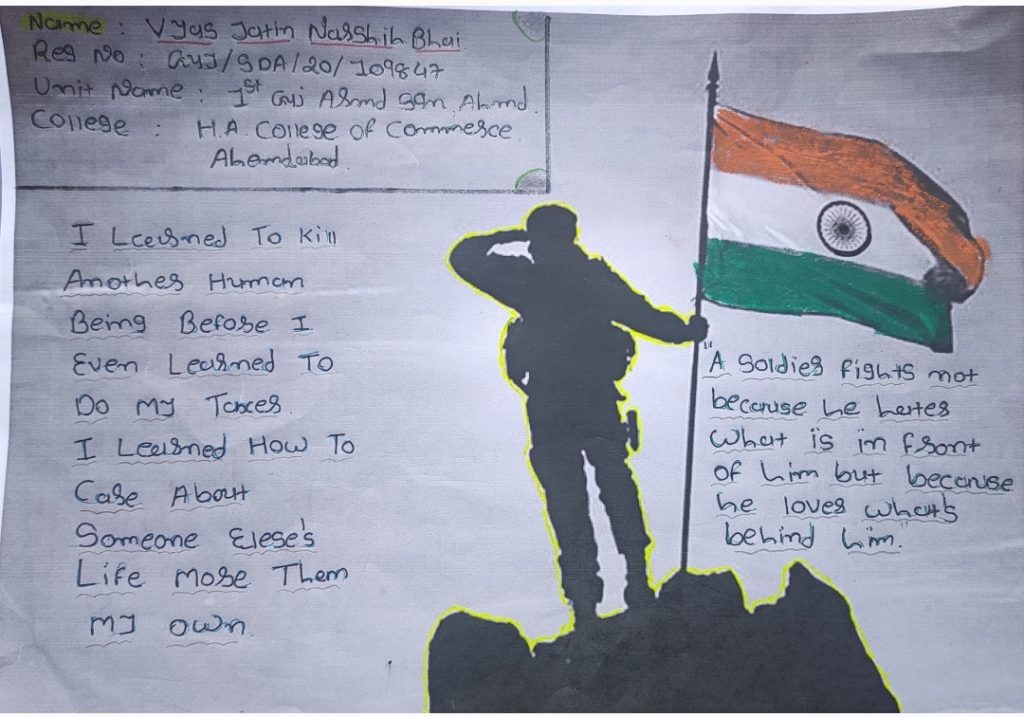 Name : Vyas Jatin Narshih Bhai
Reg No : GUJ/SDA/20/109847
Unit Name : 1st Guj Ahmd Bgn, Ahmd.
College : H.A. College of Commerce
Ahemdabad
I Learned To Kill
Another Human
Being Before I
Even Learned To
Do My Taxes.
I Learned How To
Care About
Someone Elese's
Life More Them
My Own.
"A Soldier fights not
because he hates
what is in front
of him but because
he loves what's
behind him."